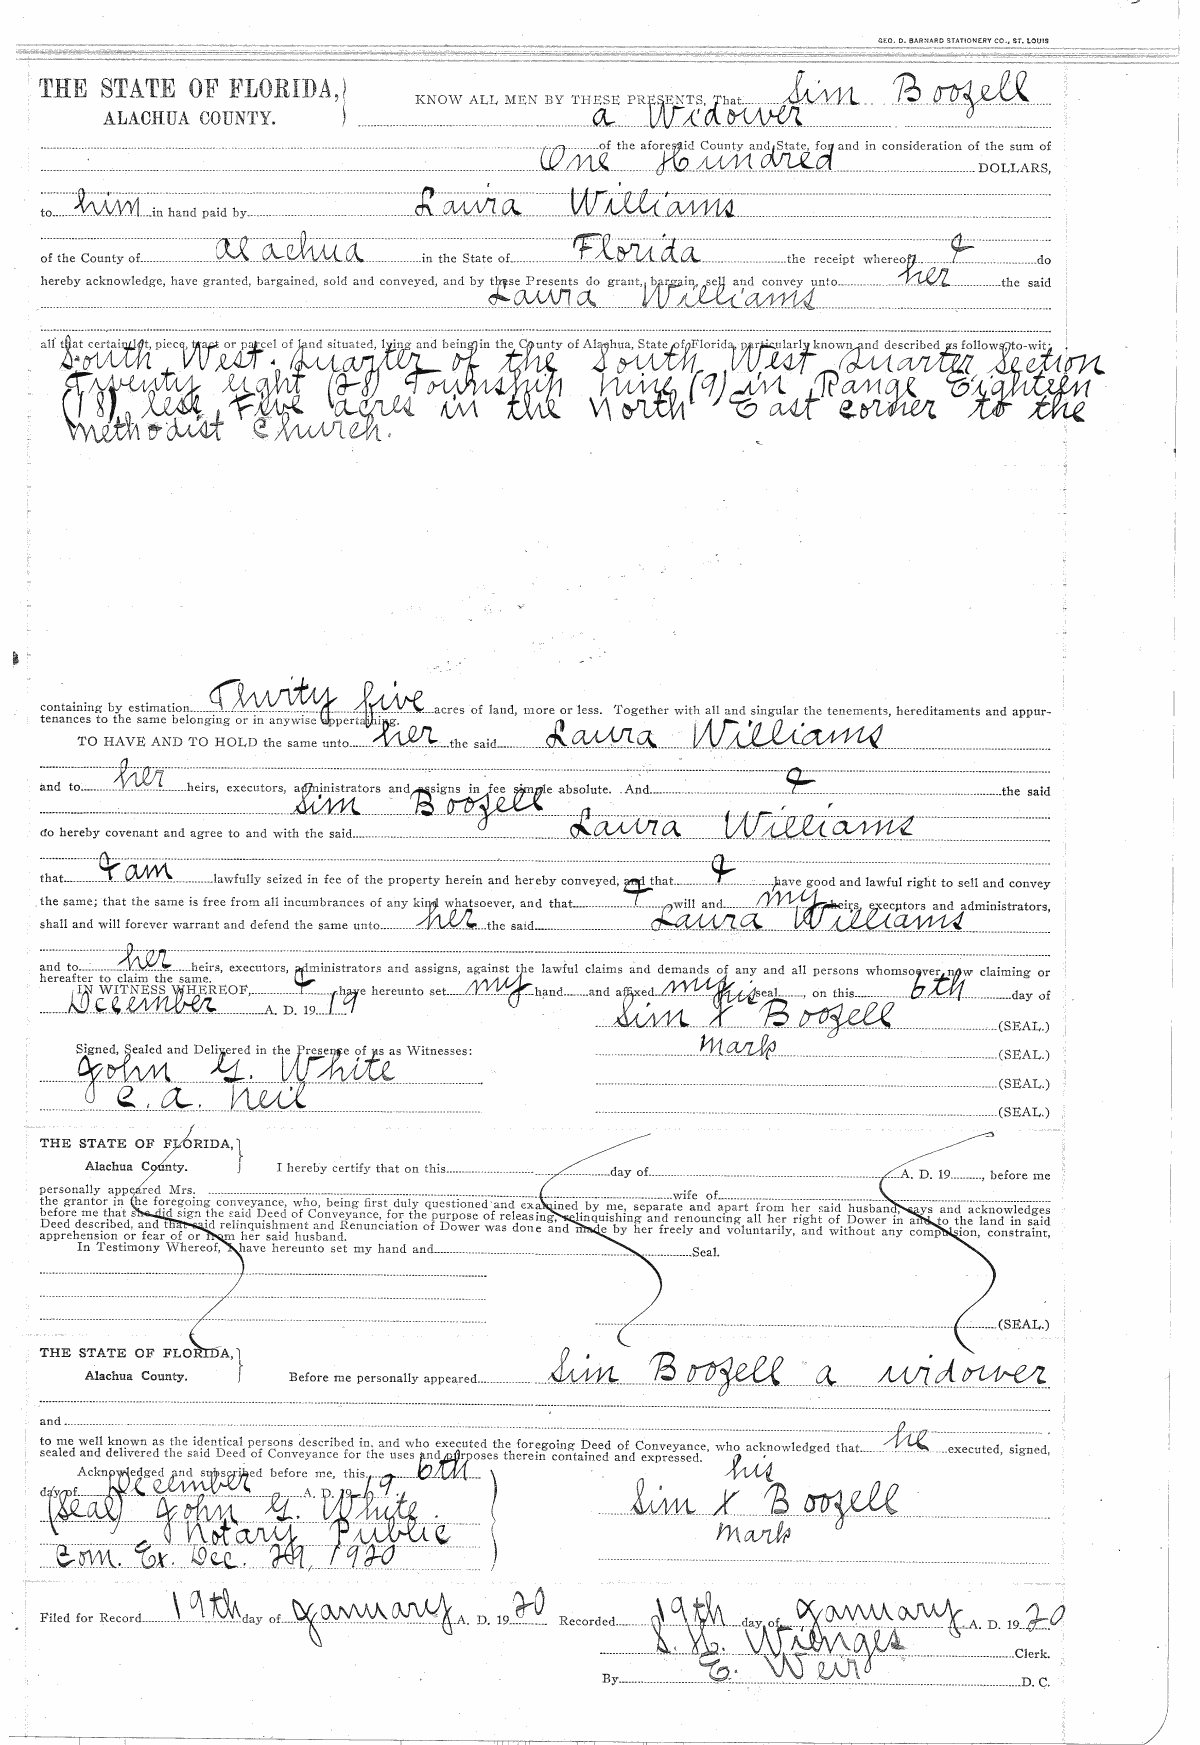 GEO. D. BARNARD STATIONERY CO., ST. LOUIS
THE STATE OF FLORIDA,
ALACHUA COUNTY.
KNOW ALL MEN BY THESE PRESENTS, That Sim Boozell
a Widower
of the aforesaid County and State, for and in consideration of the sum of
One Hundred DOLLARS,
to him in hand paid by Laura Williams
of the County of Alachua in the State of Florida the receipt whereof I do
hereby acknowledge, have granted, bargained, sold and conveyed, and by these Presents do grant, bargain, sell and convey unto her the said
Laura Williams
all that certain lot, piece, tract or parcel of land situated, lying and being in the County of Alachua, State of Florida, particularly known and described as follows, to-wit:
South West Quarter of the South West Quarter Section
Twenty eight (28) Township nine (9) in Range Eighteen
(18), less Five acres in the North East corner to the
Methodist Church.
containing by estimation Thirty five acres of land, more or less. Together with all and singular the tenements, hereditaments and appur-
tenances to the same belonging or in anywise appertaining.
TO HAVE AND TO HOLD the same unto her the said Laura Williams
and to her heirs, executors, administrators and assigns in fee simple absolute. And I the said
Sim Boozell
do hereby covenant and agree to and with the said Laura Williams
that I am lawfully seized in fee of the property herein and hereby conveyed, and that I have good and lawful right to sell and convey
the same; that the same is free from all incumbrances of any kind whatsoever, and that I will and my heirs, executors and administrators,
shall and will forever warrant and defend the same unto her the said Laura Williams
and to her heirs, executors, administrators and assigns, against the lawful claims and demands of any and all persons whomsoever, now claiming or
hereafter to claim the same.
IN WITNESS WHEREOF, I have hereunto set my hand and affixed my seal, on this 6th day of
December A. D. 19 19
his
Sim X Boozell (SEAL.)
mark (SEAL.)
Signed, Sealed and Delivered in the Presence of us as Witnesses:
John G. White (SEAL.)
C. A. Neil (SEAL.)
THE STATE OF FLORIDA,
Alachua County.
I hereby certify that on this day of A. D. 19 , before me
personally appeared Mrs. wife of
the grantor in the foregoing conveyance, who, being first duly questioned and examined by me, separate and apart from her said husband, says and acknowledges
before me that she did sign the said Deed of Conveyance, for the purpose of releasing, relinquishing and renouncing all her right of Dower in and to the land in said
Deed described, and that said relinquishment and Renunciation of Dower was done and made by her freely and voluntarily, and without any compulsion, constraint,
apprehension or fear of or from her said husband.
In Testimony Whereof, I have hereunto set my hand and Seal.
(SEAL.)
THE STATE OF FLORIDA,
Alachua County.
Before me personally appeared Sim Boozell a widower
and
to me well known as the identical persons described in, and who executed the foregoing Deed of Conveyance, who acknowledged that he executed, signed,
sealed and delivered the said Deed of Conveyance for the uses and purposes therein contained and expressed.
Acknowledged and subscribed before me, this 6th
day of December A. D. 19 19.
(Seal) John G. White.
Notary Public
Com. Ex. Dec. 29, 1920
his
Sim X Boozell
mark
Filed for Record 19th day of January A. D. 19 20 Recorded 19th day of January A. D. 19 20
S. H. Wienges Clerk.
By E. Weir D. C.